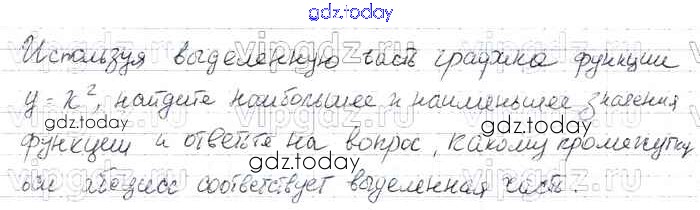 gdz.today
Используя выделенную часть графика функции
y = x², найдите наибольшее и наименьшее значения
gdz.today
функции и ответьте на вопрос, какому промежутку
gdz.today
оси абсцисс соответствует выделенная часть.